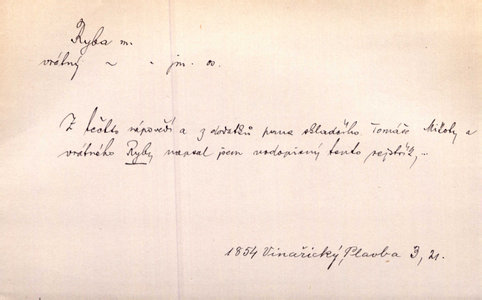 Ryba m.
vrátný ~ - jm. os.
Z těchto nápovědí a z dodatků pana skladního Tomáše Mikoty a
vrátného Ryby napsal jsem vodopisný tento rejstřík,-
1854 Vinařický, Plavba 3, 21.